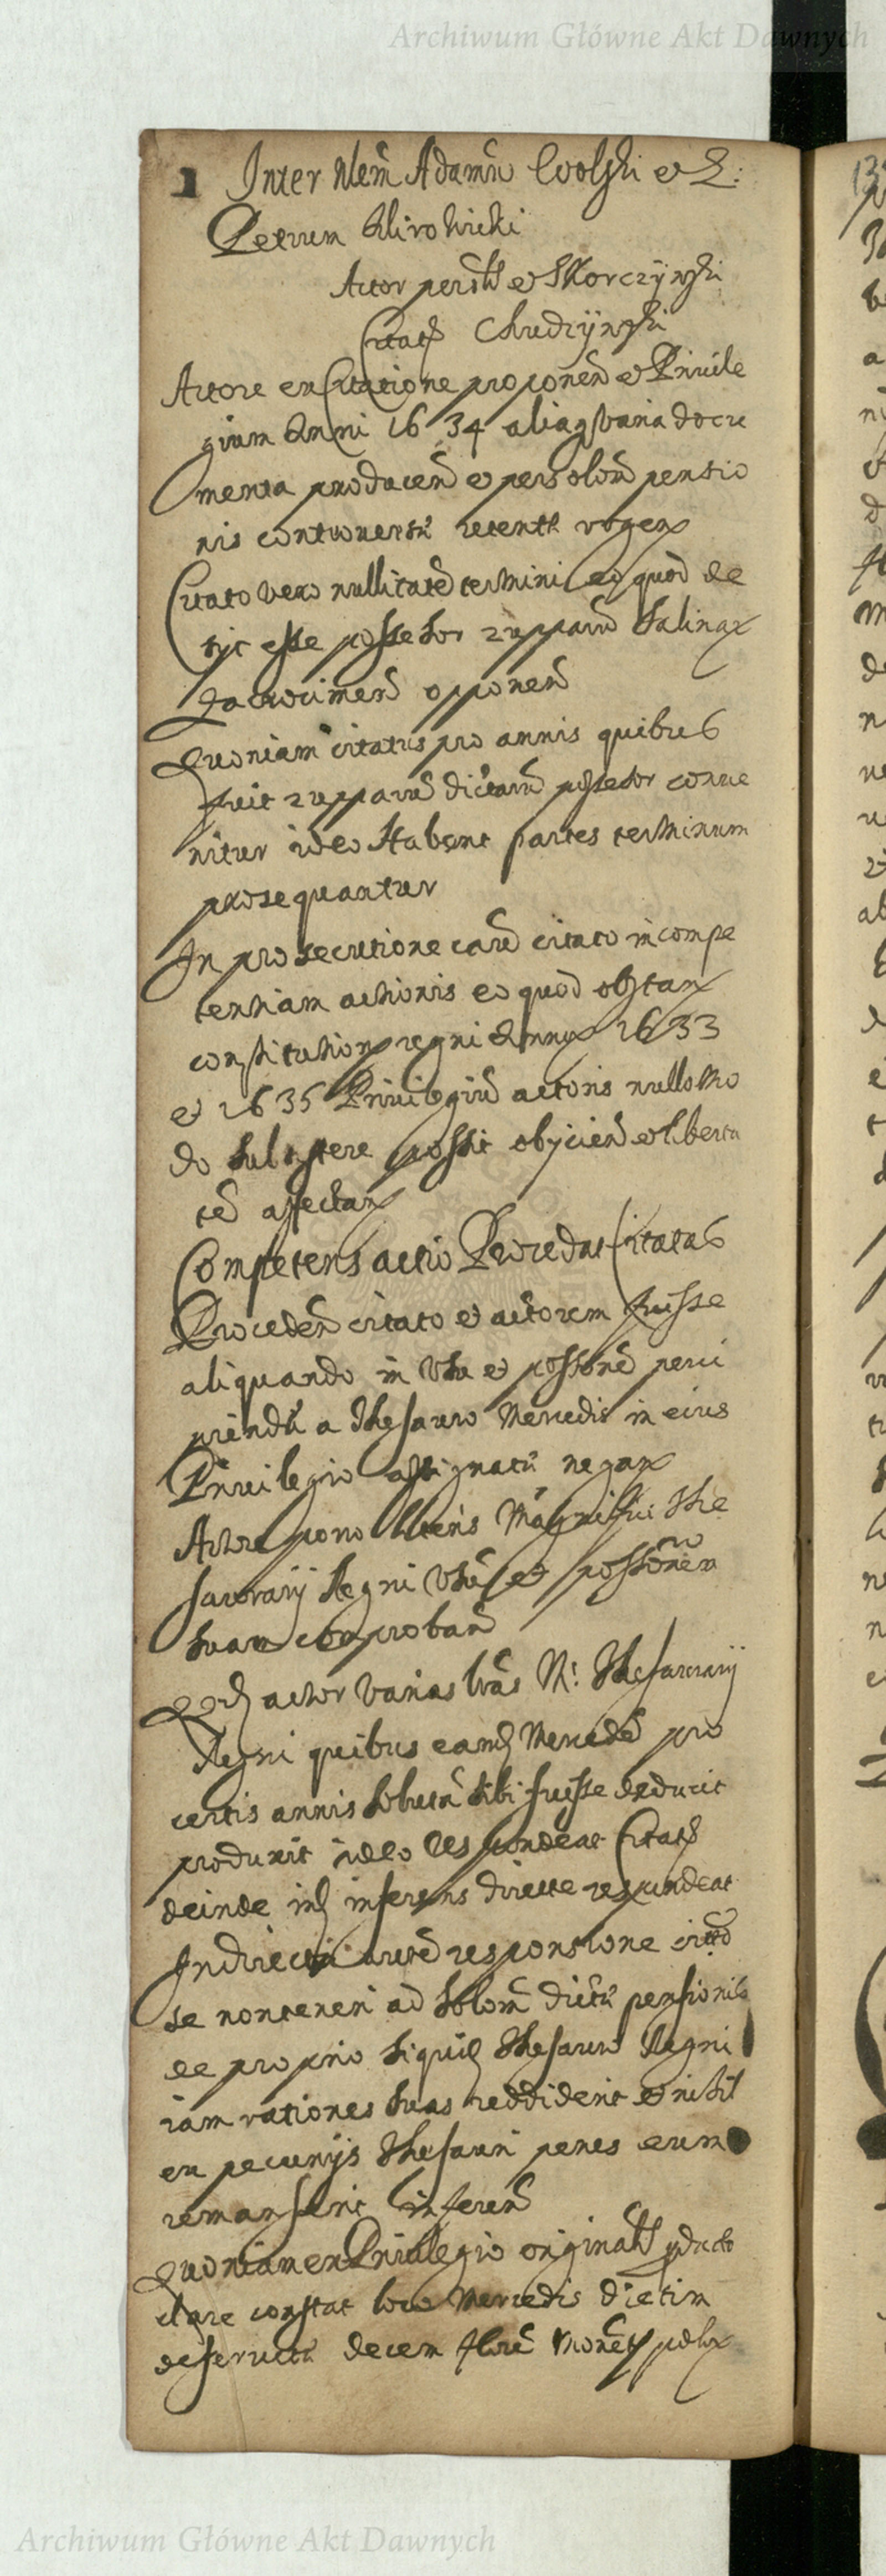 Archiwum Główne Akt Dawnych
1 Inter Nlem Adamu Wolski et G:
Petrum
Actor persłs et Skorczynski
Citats Chudzynski
Actore ex Citatione proponen et Priuile
gium Anni 1634 aliaq varia docu
menta producen et persolon pensio
nis controuersae retentae vrgen
Citato vero nullitate termini eo quod de
sijt esse possessor zupparu Salinar
opponen
Quoniam citatus pro annis quibus
fuit zupparu dictaru possessor conue
nitur ideo Habent partes terminum
prosequantur
In prosecutione earu citato incompe
tentiam actionis eo quod obstan
constitution regni Annor 1633
et 1635 Priuilegiu actoris nullo mo
do subsistere possit obijcien et liberta
te affectan
Competens actio Procedat Citatus
Proceden citato et actorem fuisse
aliquando in Vsu et possone perci
piendae a Thesauro Mercedis in eius
Priuilegio assignatae negan
Actore porro literis Magnifici The
saurarij Regni Vsu et possionem
suam comproban
Qd actor varias lras M: Thesaurarij
Regni quibus eand Mercede pro
certis annis soluta sibi fuisse deducit
produxit ideo Respondeat Citats
deinde inferens directe respondeat
Indirecta responsione citto
se non teneri ad solom dictae pensionis
de proprio siquid Thesauro Regni
iam rationes suas reddiderit et nihil
ex pecunijs Thesauri penes eum
remanserit inferen
Quoniam ex Priuilegio originali pducto
clare constat loco Mercedis dietim
deseruitae decem flore Monet polx
Archiwum Główne Akt Dawnych